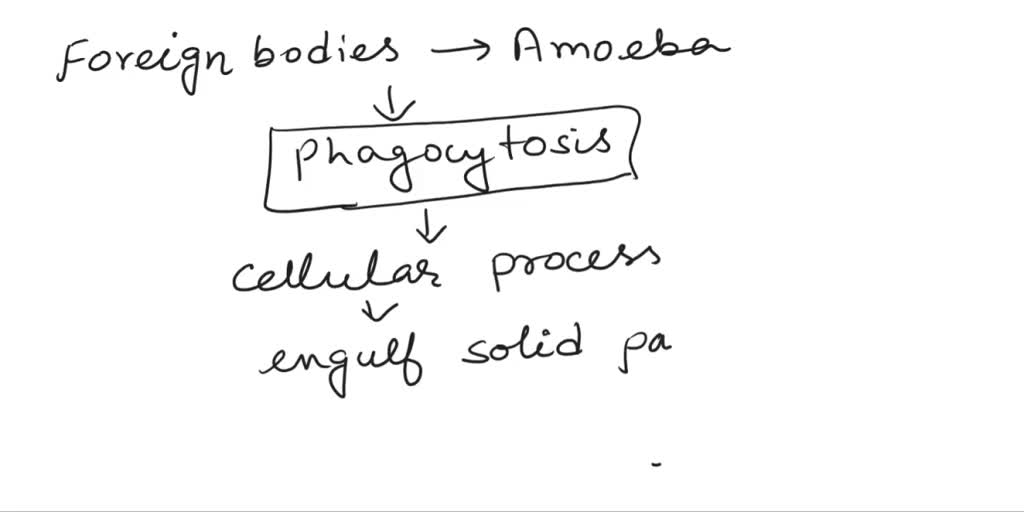 Foreign bodies → Amoeba
↓
Phagocytosis
↓
cellular process
↓
engulf solid pa